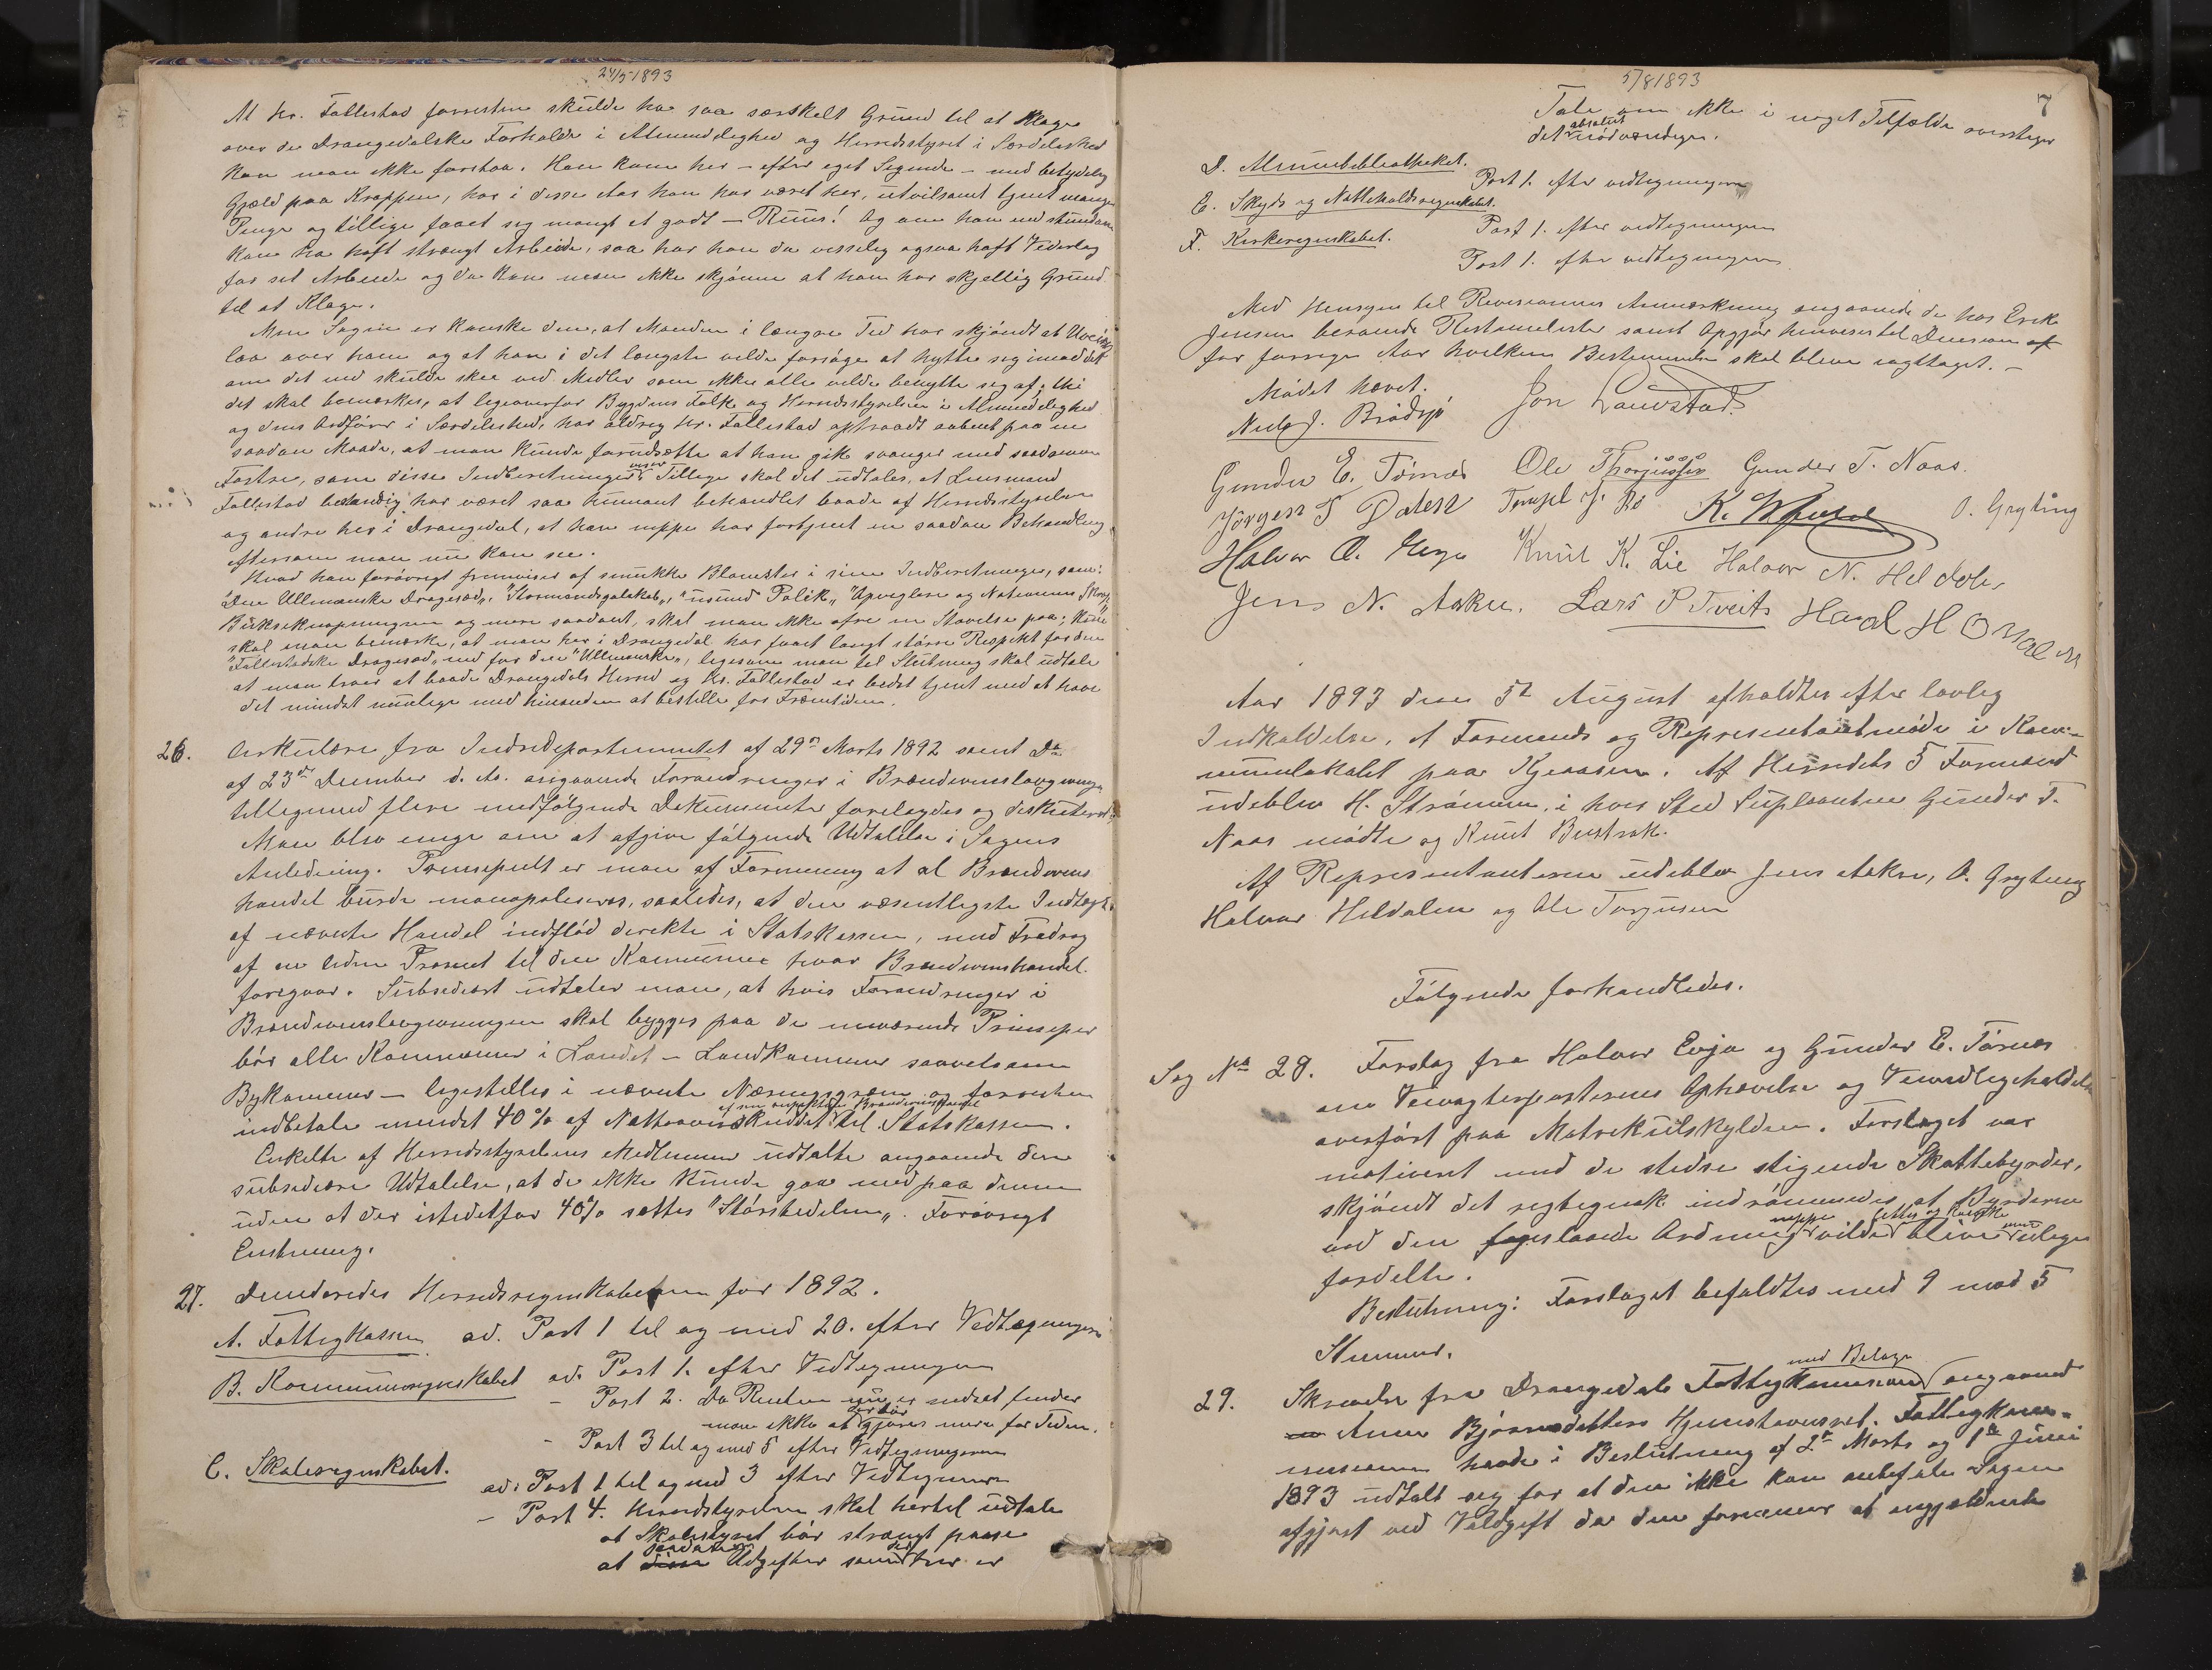 24/5 1893
At Hr. Fallestad forresten skulde ha saa særskelt Grund til at klage
over de Drangedalske Forholde i Almindelighed og Herredsstyret i Særdeleshed
kan man ikke forstaa. Han kom her – efter eget Sigende – med betydelig
Gjæld paa Kroppen, har i disse Aar han har været her, utvilsomt tjent mange
Penge og tillige faaet sig mangt et godt – Ruus! Og om han end stundom
kan ha haft strængt Arbeide, saa har han da visselig ogsaa haft Vederlag
for sit Arbeide og da kan man ikke skjønne at han har skjellig Grund
til at klage.
Men Sagen er kanske den, at Manden i længre Tid har skjøndt at Uveir
laa over ham og at han i det længste vilde forsøge at hytte sig imod det
om det end skulde ske ved Midler som ikke alle vilde benytte sig af; thi
det skal bemærkes, at ligeoverfor Bygdens Folk og Herredsstyrelsen i Almindelighed
og dens Ordfører i Særdeleshed, har aldrig Hr. Fallestad optraadt aabent paa en
saadan Maade, at man kunde forudsætte at han gik svanger med saadanne
Fostre, som disse Indberetninger viser. Tillige skal det udtales, at Lensmand
Fallestad bestandig har været saa humant behandlet baade af Herredsstyrelsen
og andre her i Drangedal, at han neppe har fortjent en saadan Behandling
eftersom man nu kan see.
Hvad han forøvrigt fremviser af smukke Blomster i sine Indberetninger, som:
"Den Ullmanske Dragesæd", "Stormandsgalskab", "usund Politik", "Opviglere og Nationens Skrig"
Buksekneppningen og mere saadant, skal man ikke ofre en Stavelse paa; Kun
skal man bemærke, at man her i Drangedal har faaet langt større Respekt for den
"Fallestadske Dragesæd" end for den "Ullmanske", ligesom man til Slutning skal udtale
at man troer at baade Drangedals Herred og Hr. Fallestad er bedst tjent med at have
det mindst mulige med hinanden at bestille for Fremtiden.
26. Cirkulære fra Indredepartementet af 29de Marts 1892 samt Do
af 23de December s. A. angaaende Forandringer i Brændevinslovgivningen
tilligemed flere medfølgende Dokumenter forelagdes og diskuteredes.
Man blev enige om at afgive følgende Udtalelse i Sagens
Anledning. Principielt er man af Formening at al Brændevins
handel burde monopoliseres, saaledes, at den væsentligste Indtægt
af nævnte Handel indflød direkte i Statskassen, med Fradrag
af en liden Procent til den Kommune hvor Brændevinshandel
foregaar. Subsidiært udtaler man, at hvis Forandringer i
Brændevinslovgivningen skal bygges paa de nuværende Principer
bør alle Kommuner i Landet – Landkommuner saavelsom
Bykommuner – ligestilles i nævnte Næringsgren og forresten
af sin respektive Brændevinshandel
indbetale mindst 40% af Nettooverskuddet til Statskassen.
Enkelte af Herredsstyrelsens Medlemmer udtalte angaaende den
subsidiære Udtalelse, at de ikke kunde gaa med paa denne
uden at der istedetfor 40% sættes "Størstedelen". Forøvrigt
Enstemmig.
27. Desideredes Herredsregnskaberne for 1892.
A. Fattigkassen ad. Post 1 til og med 20. efter Vedtegningen
B. Kommuneregnskabet ad. Post 1. efter Vedtegningen
– Post 2. Da Renten nu er nedsat finder
man ikke at der bør gjøres mere for Tiden.
– Post 3 til og med 5 efter Vedtegningerne
C. Skoleregnskabet.
ad: Post 1 til og med 3 efter Vedtegningen
– Post 4. Herredsstyrelsen skal hertil udtale
at Skolestyret bør strengt passe
at saadanne Udgifter som der her er
5/8 1893
7
Tale om ikke i noget Tilfælde overstiger
det absolut nødvendige.
D. Almuebibliotheket.
Post 1. efter vedtegningen
E. Skyds og Natteholdsregnskabet.
Post 1. efter vedtegningen
F. Kirkeregnskabet.
Post 1. efter vedtegningen
Med Hensyn til Revisionens Anmærkning angaaende de hos Erik
Jensen beroende Restancelister samt Opgjør henvises til Decision af
for forrige Aar hvilken Bestemmelse skal blive iagttaget. –
Mødet hævet.
Niels J. Brødsjø Jon Lauvstad
Gunder E. Tørnes Ole Thorjussen Gunder T. Naas.
Jörgen T Dalen Tengel J. Bø O. Gryting
Halvor O. Evja Knut K. Lie Halvor N. Heldalen
Jens N. Aakre. Lars P Tveit Haral H Omdalen
Aar 1893 den 5te August afholdtes efter lovlig
Indkaldelse, et Formands og Repræsentantmøde i Kom-
munelokalet paa Kjeaasen. Af Herredets 5 Formænd
udeblev H. Strømme, i hvis Sted Supleanten Gunder T.
Naas mødte og Knut Bustrak.
Af Repræsentanterne udeblev Jens Aakre, O. Gryting
Halvor Heldalen og Ole Torjusen
Følgende forhandledes.
Sag No 28. Forslag fra Halvor Evja og Gunder E. Tørnes
om Veivogterposternes Ophævelse og Veivedligeholdelsen
overført paa Matrikulskylden. Forslaget var
motiveret med de stedse stigende Skattebyrder,
skjøndt det rigtignok indrømmedes, at Byrderne
ved den foreslaaede Ordning neppe vilde blive lettere og kanske mere ulige
fordelte.
Beslutning: Forslaget befaldtes med 9 mod 5
Stemmer.
29. Skrivelse fra Drangedals Fattigkommission med Bilage angaaende
Anne Bjørnsdatters Hjemstavnsret. Fattigkom-
missionen havde i Beslutning af 2de Marts og 1ste Juni
1893 udtalt sig for at den ikke kan anbefale Sagen
afgjort ved Voldgift da den formener at angjældende